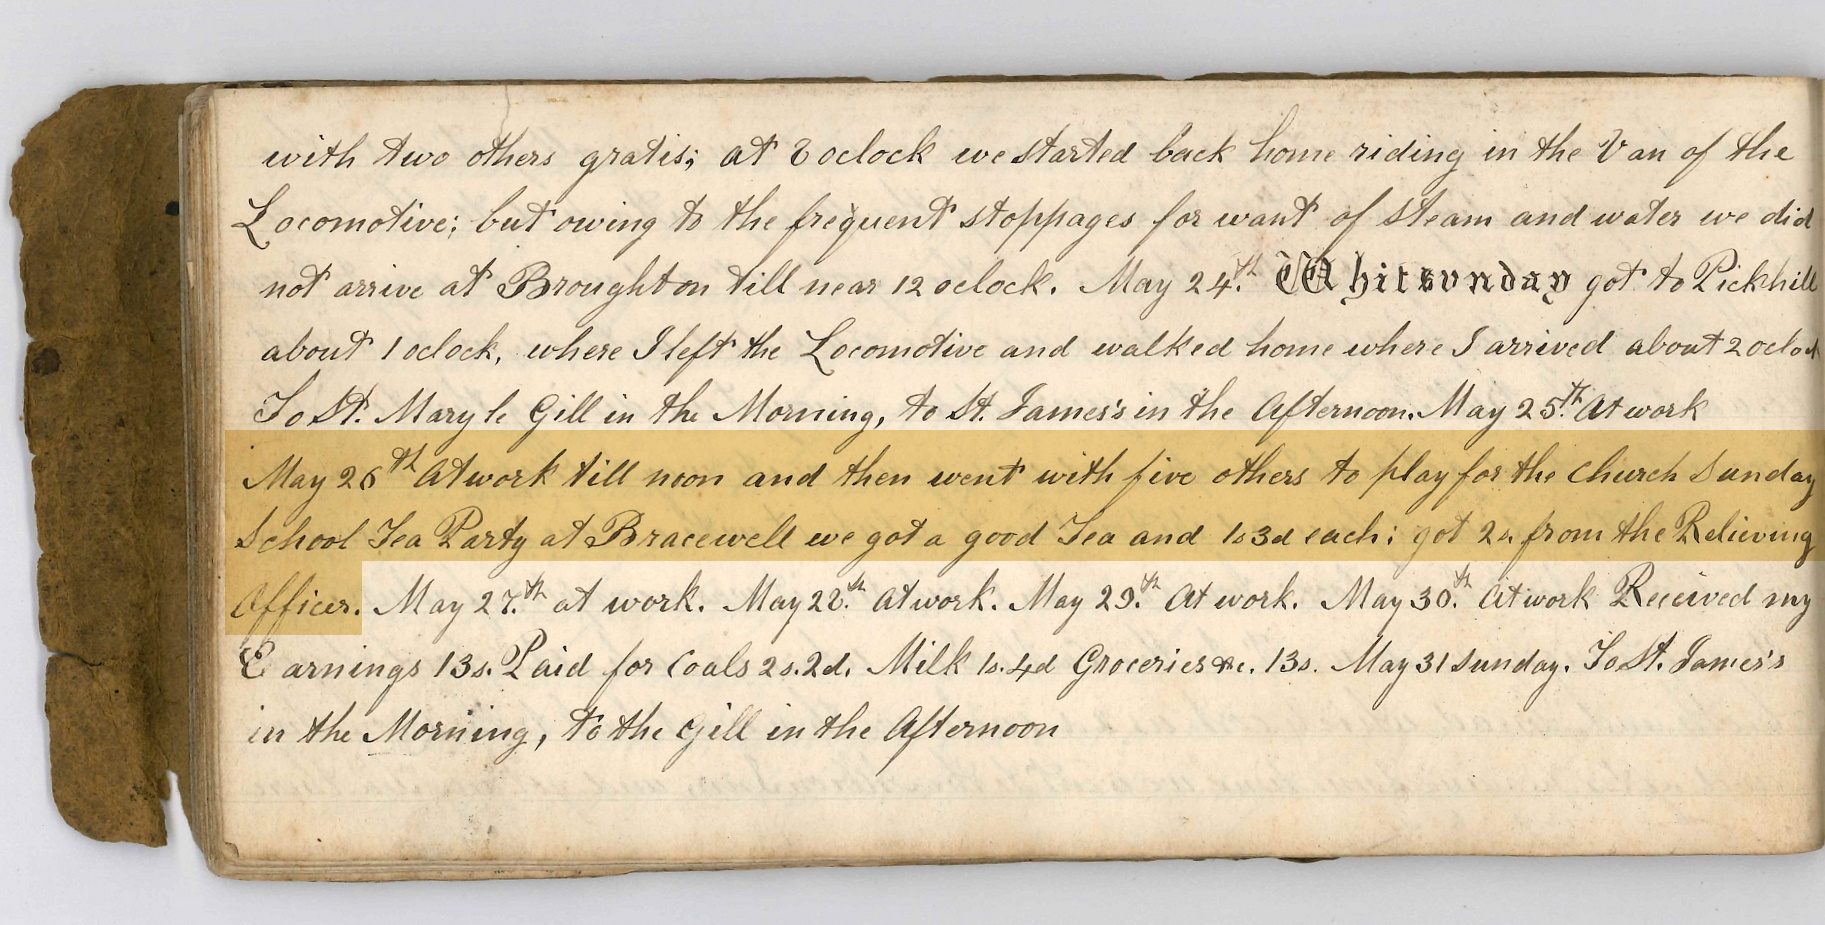 with two others gratis; at 8 oclock we started back home riding in the Van of the
Locomotive; but owing to the frequent stoppages for want of steam and water we did
not arrive at Broughton till near 12 oclock. May 24th. Whitsunday got to Pickhill
about 1 oclock, where I left the Locomotive and walked home where I arrived about 2 oclock
To St. Mary le Gill in the Morning, to St. James's in the Afternoon. May 25th. At work
May 26th At work till noon and then went with five others to play for the Church Sunday
School Tea Party at Bracewell we got a good Tea and 1s 3d each; got 2s. from the Relieving
Officer. May 27.th at work. May 28.th At work. May 29.th At work. May 30.th At work Received my
Earnings 13s. Paid for Coals 2s.2d. Milk 1s.4d Groceries &c. 13s. May 31 Sunday. To St. James's
in the Morning, to the Gill in the Afternoon